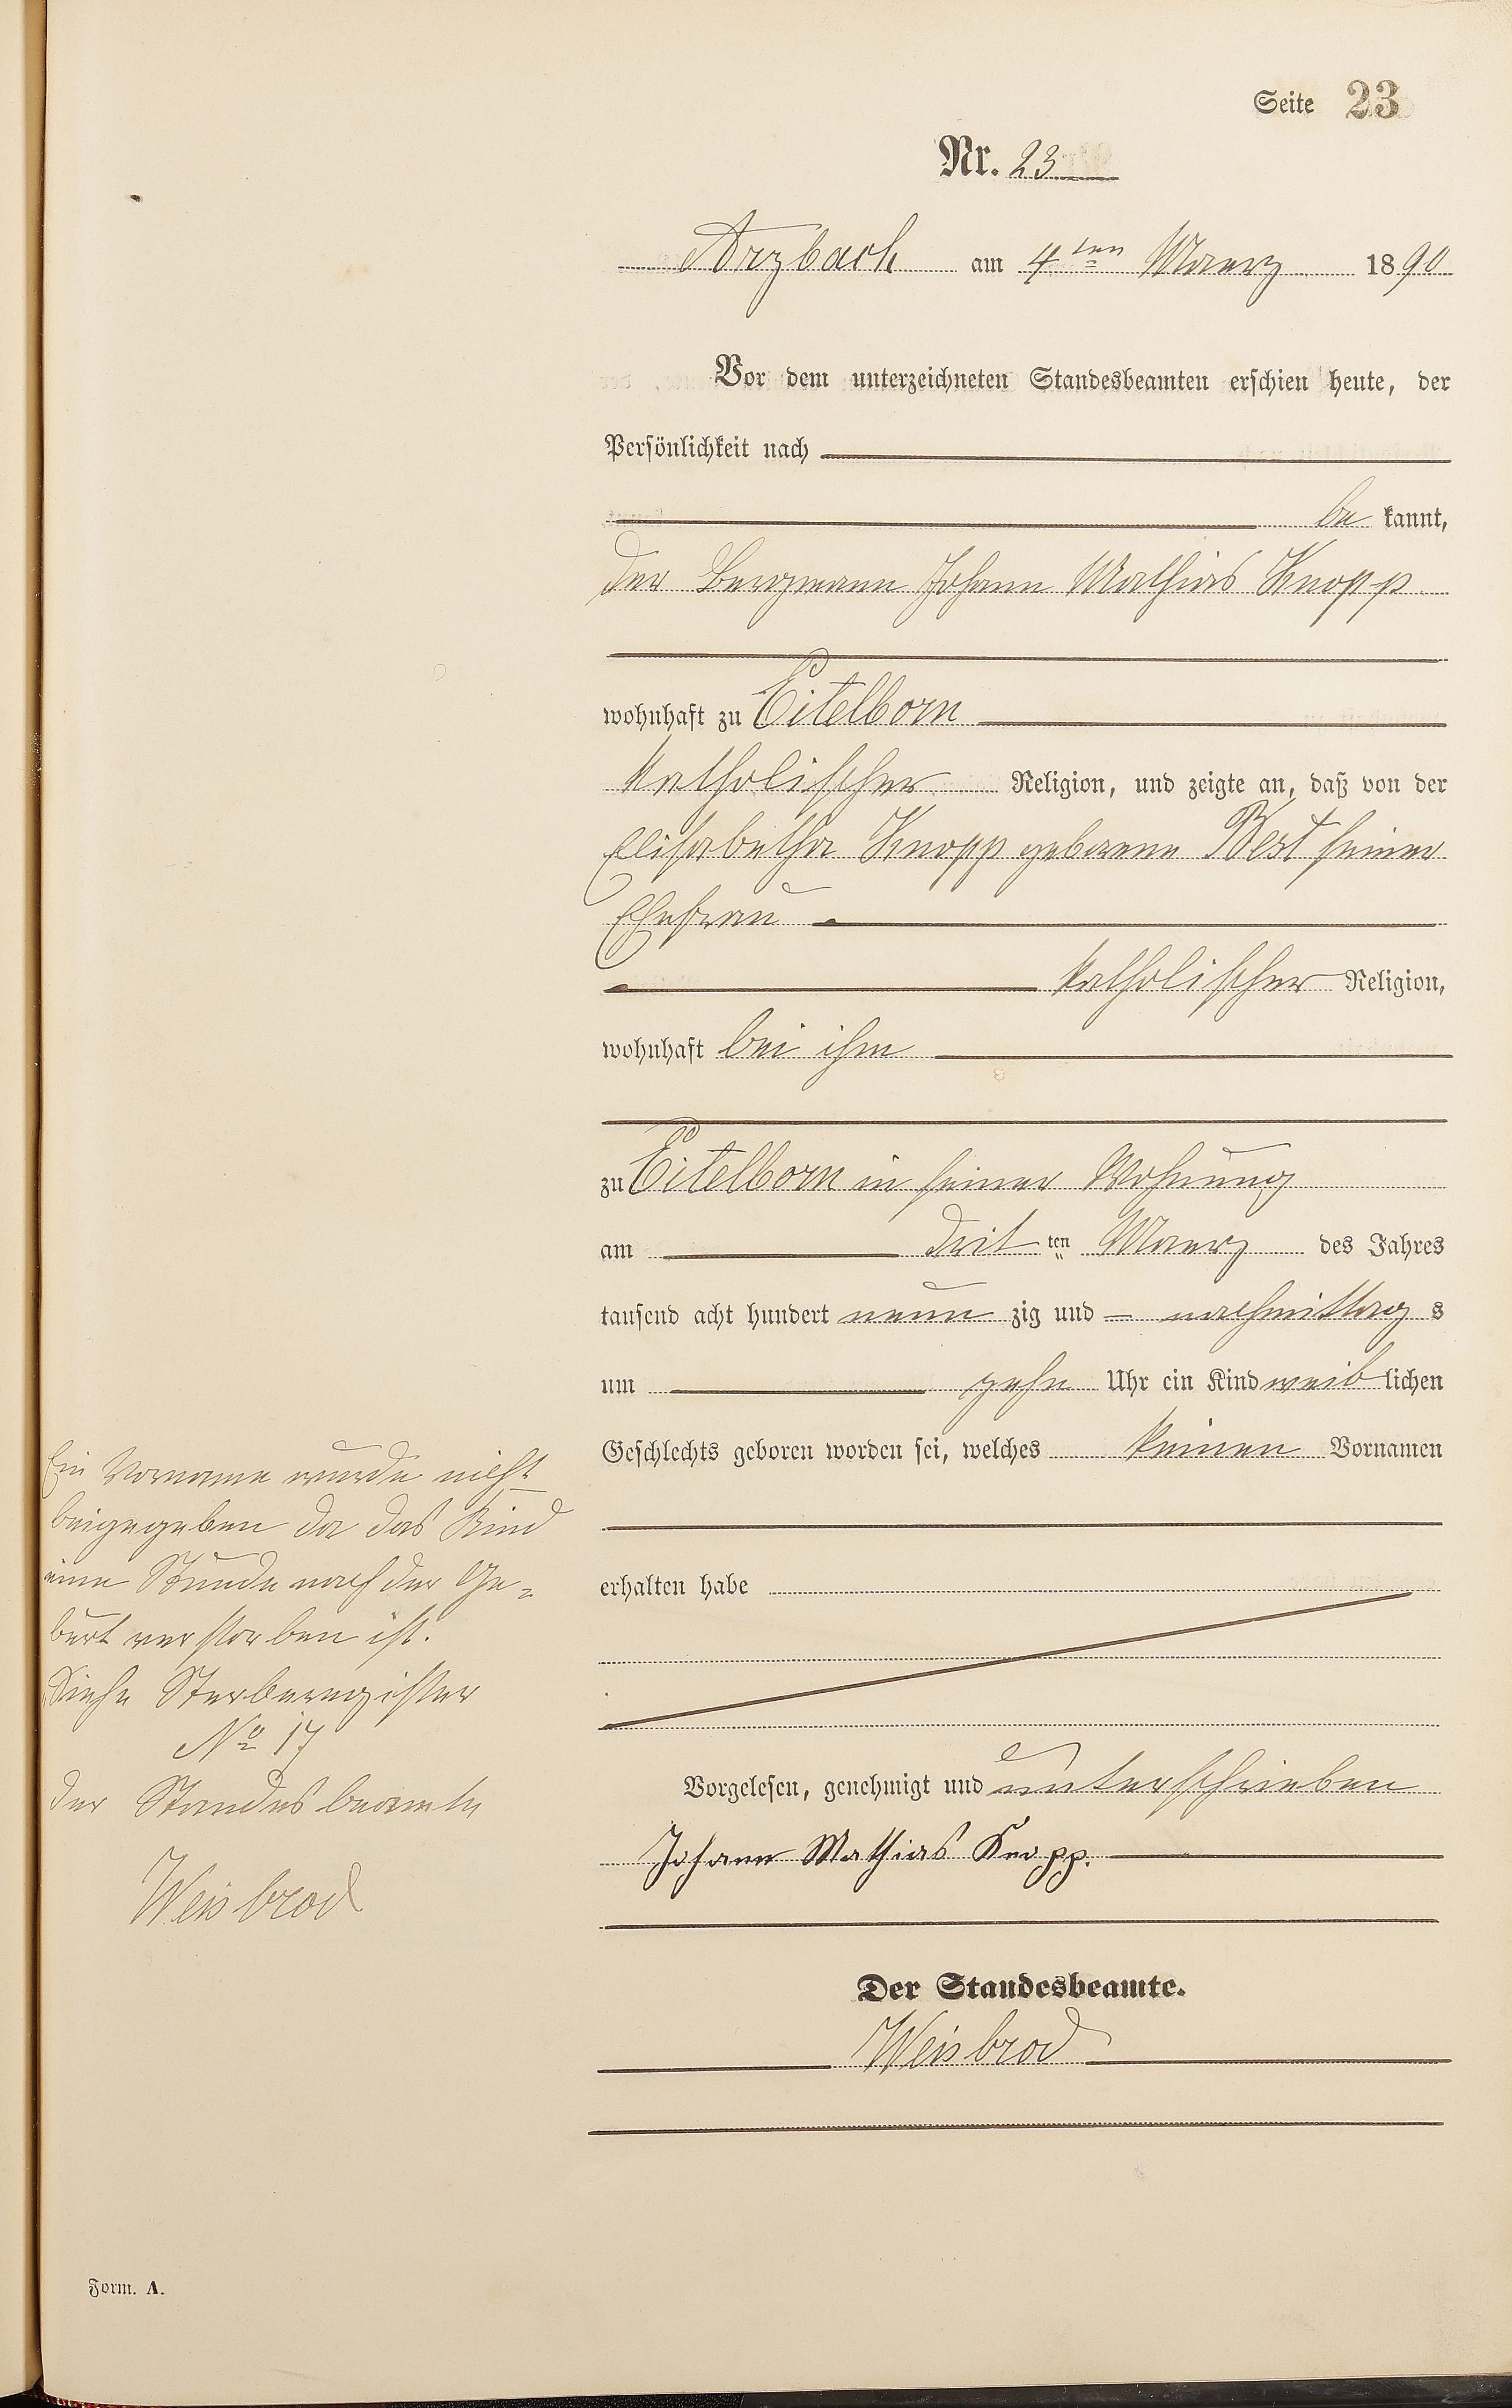 Seite 23
Nr. 23
Arzbach am 4ten Maerz 1890
Vor dem unterzeichneten Standesbeamten erschien heute, der
Persönlichkeit nach
be kannt,
der Bergmann Johann Mathias Knopp
wohnhaft zu Eitelborn
katholischer Religion, und zeigte an, daß von der
Elisabetha Knopp geborene Best seiner
Ehefrau
katholischer Religion,
wohnhaft bei ihm
zu Eitelborn in seiner Wohnung
am drit ten Maerz des Jahres
tausend acht hundert neun zig und — nachmittag s
um zehn Uhr ein Kind weib lichen
Geschlechts geboren worden sei, welches keinen Vornamen
erhalten habe
Vorgelesen, genehmigt und unterschrieben
Johann Mathias Knopp.
Der Standesbeamte.
Weisbrod
Ein Vorname wurde nicht
beigegeben da das Kind
eine Stunde nach der Ge=
burt verstorben ist.
Siehe Sterberegister
No 17
Der Standesbeamte
Weisbrod
Form. A.